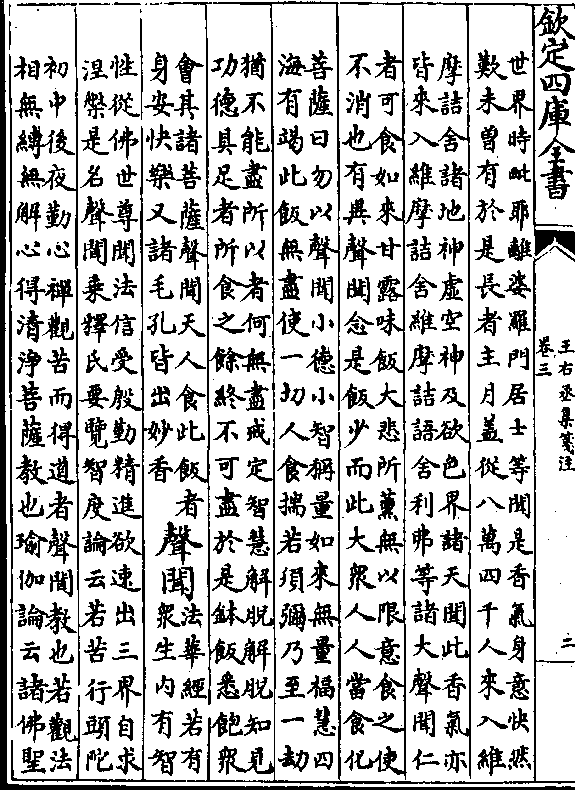 欽定四庫全書
王右丞集箋注
卷三
二
世界時毗耶離婆羅門居士等聞是香氣身意快然
歎未曾有於是長者主月蓋從八萬四千人來入維
摩詰舍諸地神虛空神及欲色界諸天聞此香氣亦
皆來入維摩詰舍維摩詰語舍利弗等諸大聲聞仁
者可食如來甘露味飯大悲所薰無以限意食之使
不消也有異聲聞念是飯少而此大衆人人當食化
菩薩曰勿以聲聞小德小智稱量如來無量福慧四
海有竭此飯無盡使一切人食揣若須彌乃至一劫
猶不能盡所以者何無盡戒定智慧解脫解脫知見
功德具足者所食之餘終不可盡於是鉢飯悉飽衆
會其諸菩薩聲聞天人食此飯者
身安快樂又諸毛孔皆出妙香
聲聞
法華經若有
衆生内有智
性從佛世尊聞法信受殷勤精進欲速出三界自求
涅槃是名聲聞乘釋氏要覽智度論云若苦行頭陀
初中後夜勤心禪觀苦而得道者聲聞教也若觀法
相無縛無解心得清淨菩薩教也瑜伽論云諸佛聖